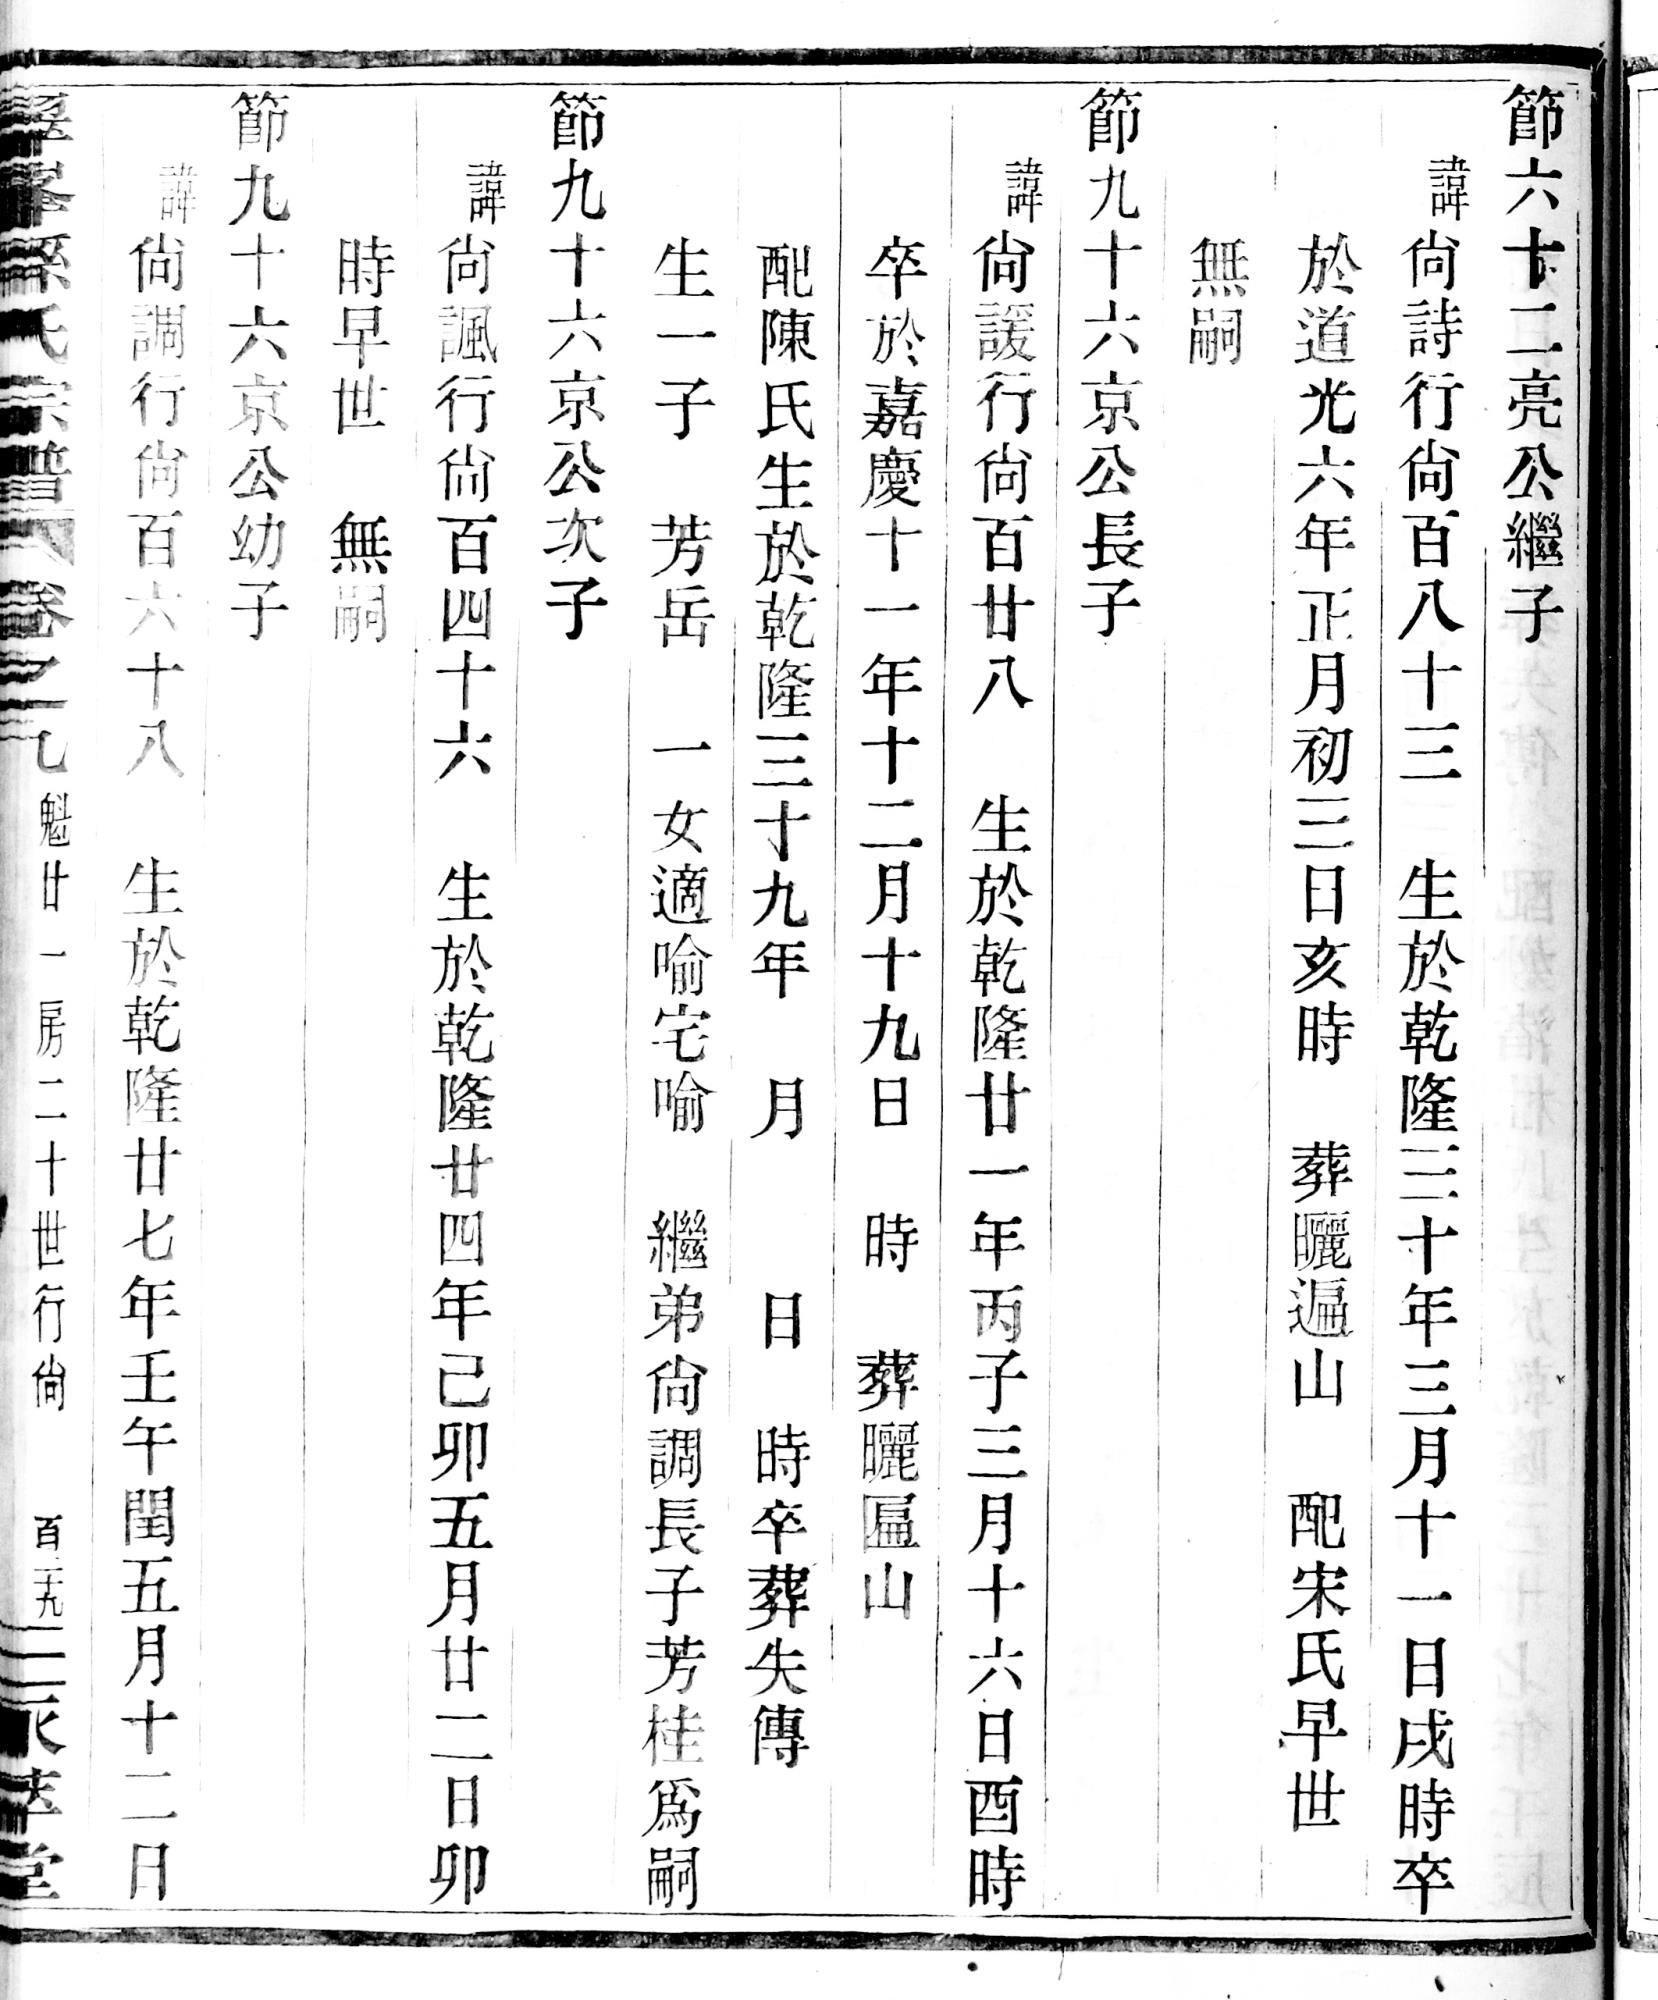 節六十二亮公繼子
諱尙詩行尙百八十三　生於乾隆三十年三月十一日戌時卒
於道光六年正月初三日亥時　葬曬遍山　配宋氏早世
無嗣
節九十六京公長子
諱尙諼行尙百廿八　生於乾隆廿一年丙子三月十六日酉時
卒於嘉慶十一年十二月十九日　時　葬曬匾山
配陳氏生於乾隆三十九年　月　日　時卒葬失傳
生一子　芳岳　一女適喻宅喻　繼弟尙調長子芳桂爲嗣
節九十六京公次子
諱尙諷行尙百四十六　生於乾隆廿四年己卯五月廿二日卯
時早世　無嗣
節九十六京公幼子
諱尙調行尙百六十八　生於乾隆廿七年壬午閏五月十二日
孫氏宗譜　卷之九　魁廿一房二十世行尙　百二十九　永萃堂